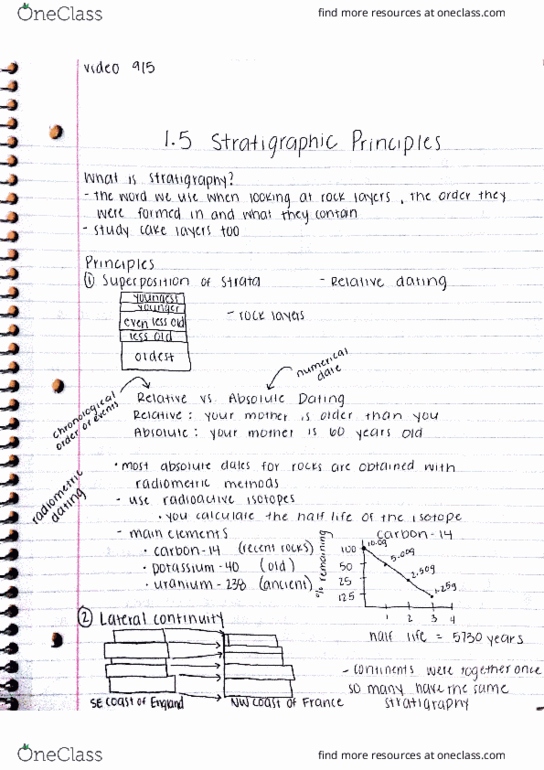 OneClass
find more resources at oneclass.com
video 9/5
1.5 Stratigraphic Principles
What is stratigraphy?
- the word we use when looking at rock layers, the order they
were formed in and what they contain
- study cake layers too
Principles
① Superposition of strata - Relative dating
youngest
younger
even less old
less old
oldest
- rock layers
numerical
date
chronological
order of events
Relative vs Absolute Dating
Relative: your mother is older than you
Absolute: your mother is 60 years old
radiometric
dating
• most absolute dates for rocks are obtained with
radiometric methods
- use radioactive isotopes
• you calculate the half life of the isotope
- main elements
• carbon-14 (recent rocks)
• potassium-40 (old)
• uranium-238 (ancient)
carbon-14
% remaining
100
50
25
12.5
10.0g
5.00g
2.50g
1.25g
1 2 3 4
half life = 5730 years
② Lateral continuity
SE coast of England
NW coast of France
- continents were together once
so many have the same
stratigraphy
OneClass
find more resources at oneclass.com